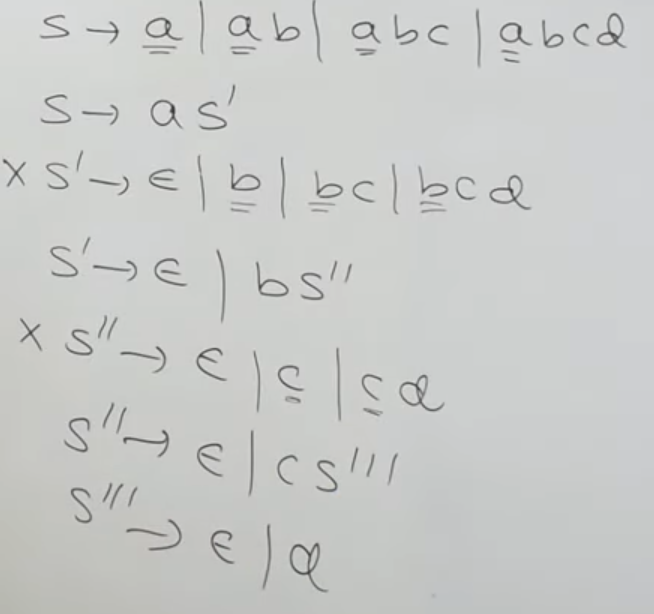 S → a | ab | abc | abcd
S → aS'
× S' → ϵ | b | bc | bcd
S' → ϵ | bS''
× S'' → ϵ | c | cd
S'' → ϵ | cS'''
S''' → ϵ | d